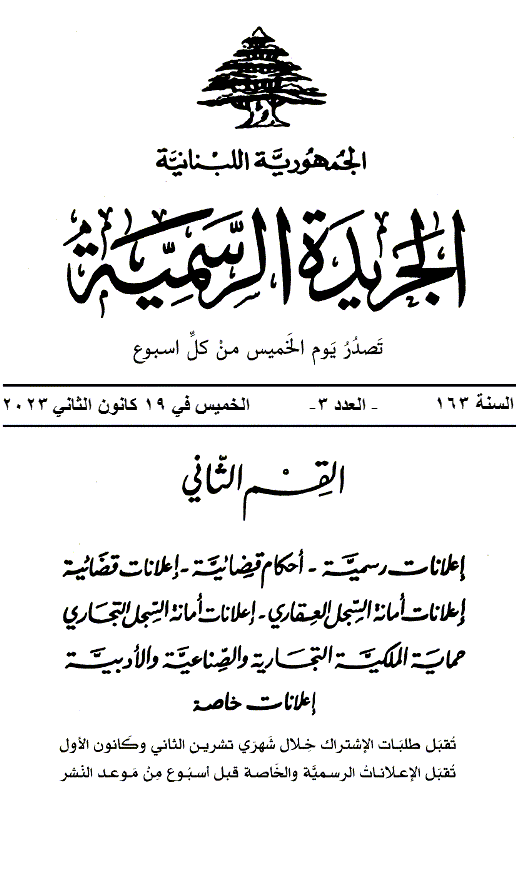 الجُمهُوريَّة اللبْنانيَّة
الجَريدَة الرسَّمِيَّة
تَصدُرُ يَوم الخَميس منْ كلِّ اسبوع
السنة ١٦٣ - العدد ٣- الخميس في ١٩ كانون الثاني ٢٠٢٣
القِسْم الثّاني
إعلانات رسميَّة - أحكام قضائيَّة - إعلانات قضائية
إعلانات أمانة السِّجل العقاري - إعلانات أمانة السِّجل التجاري
حماية الملكيَّة التجارية والصِّناعيَّة والأدبيَّة
إعلانات خاصة
تُقبَل طلبَات الإشتراك خِلال شَهرَي تشرين الثاني وكَانون الأول
تُقبَل الإعلاناتُ الرسميَّة والخَاصة قبل أسبُوع مِنْ مَوعد النَشر